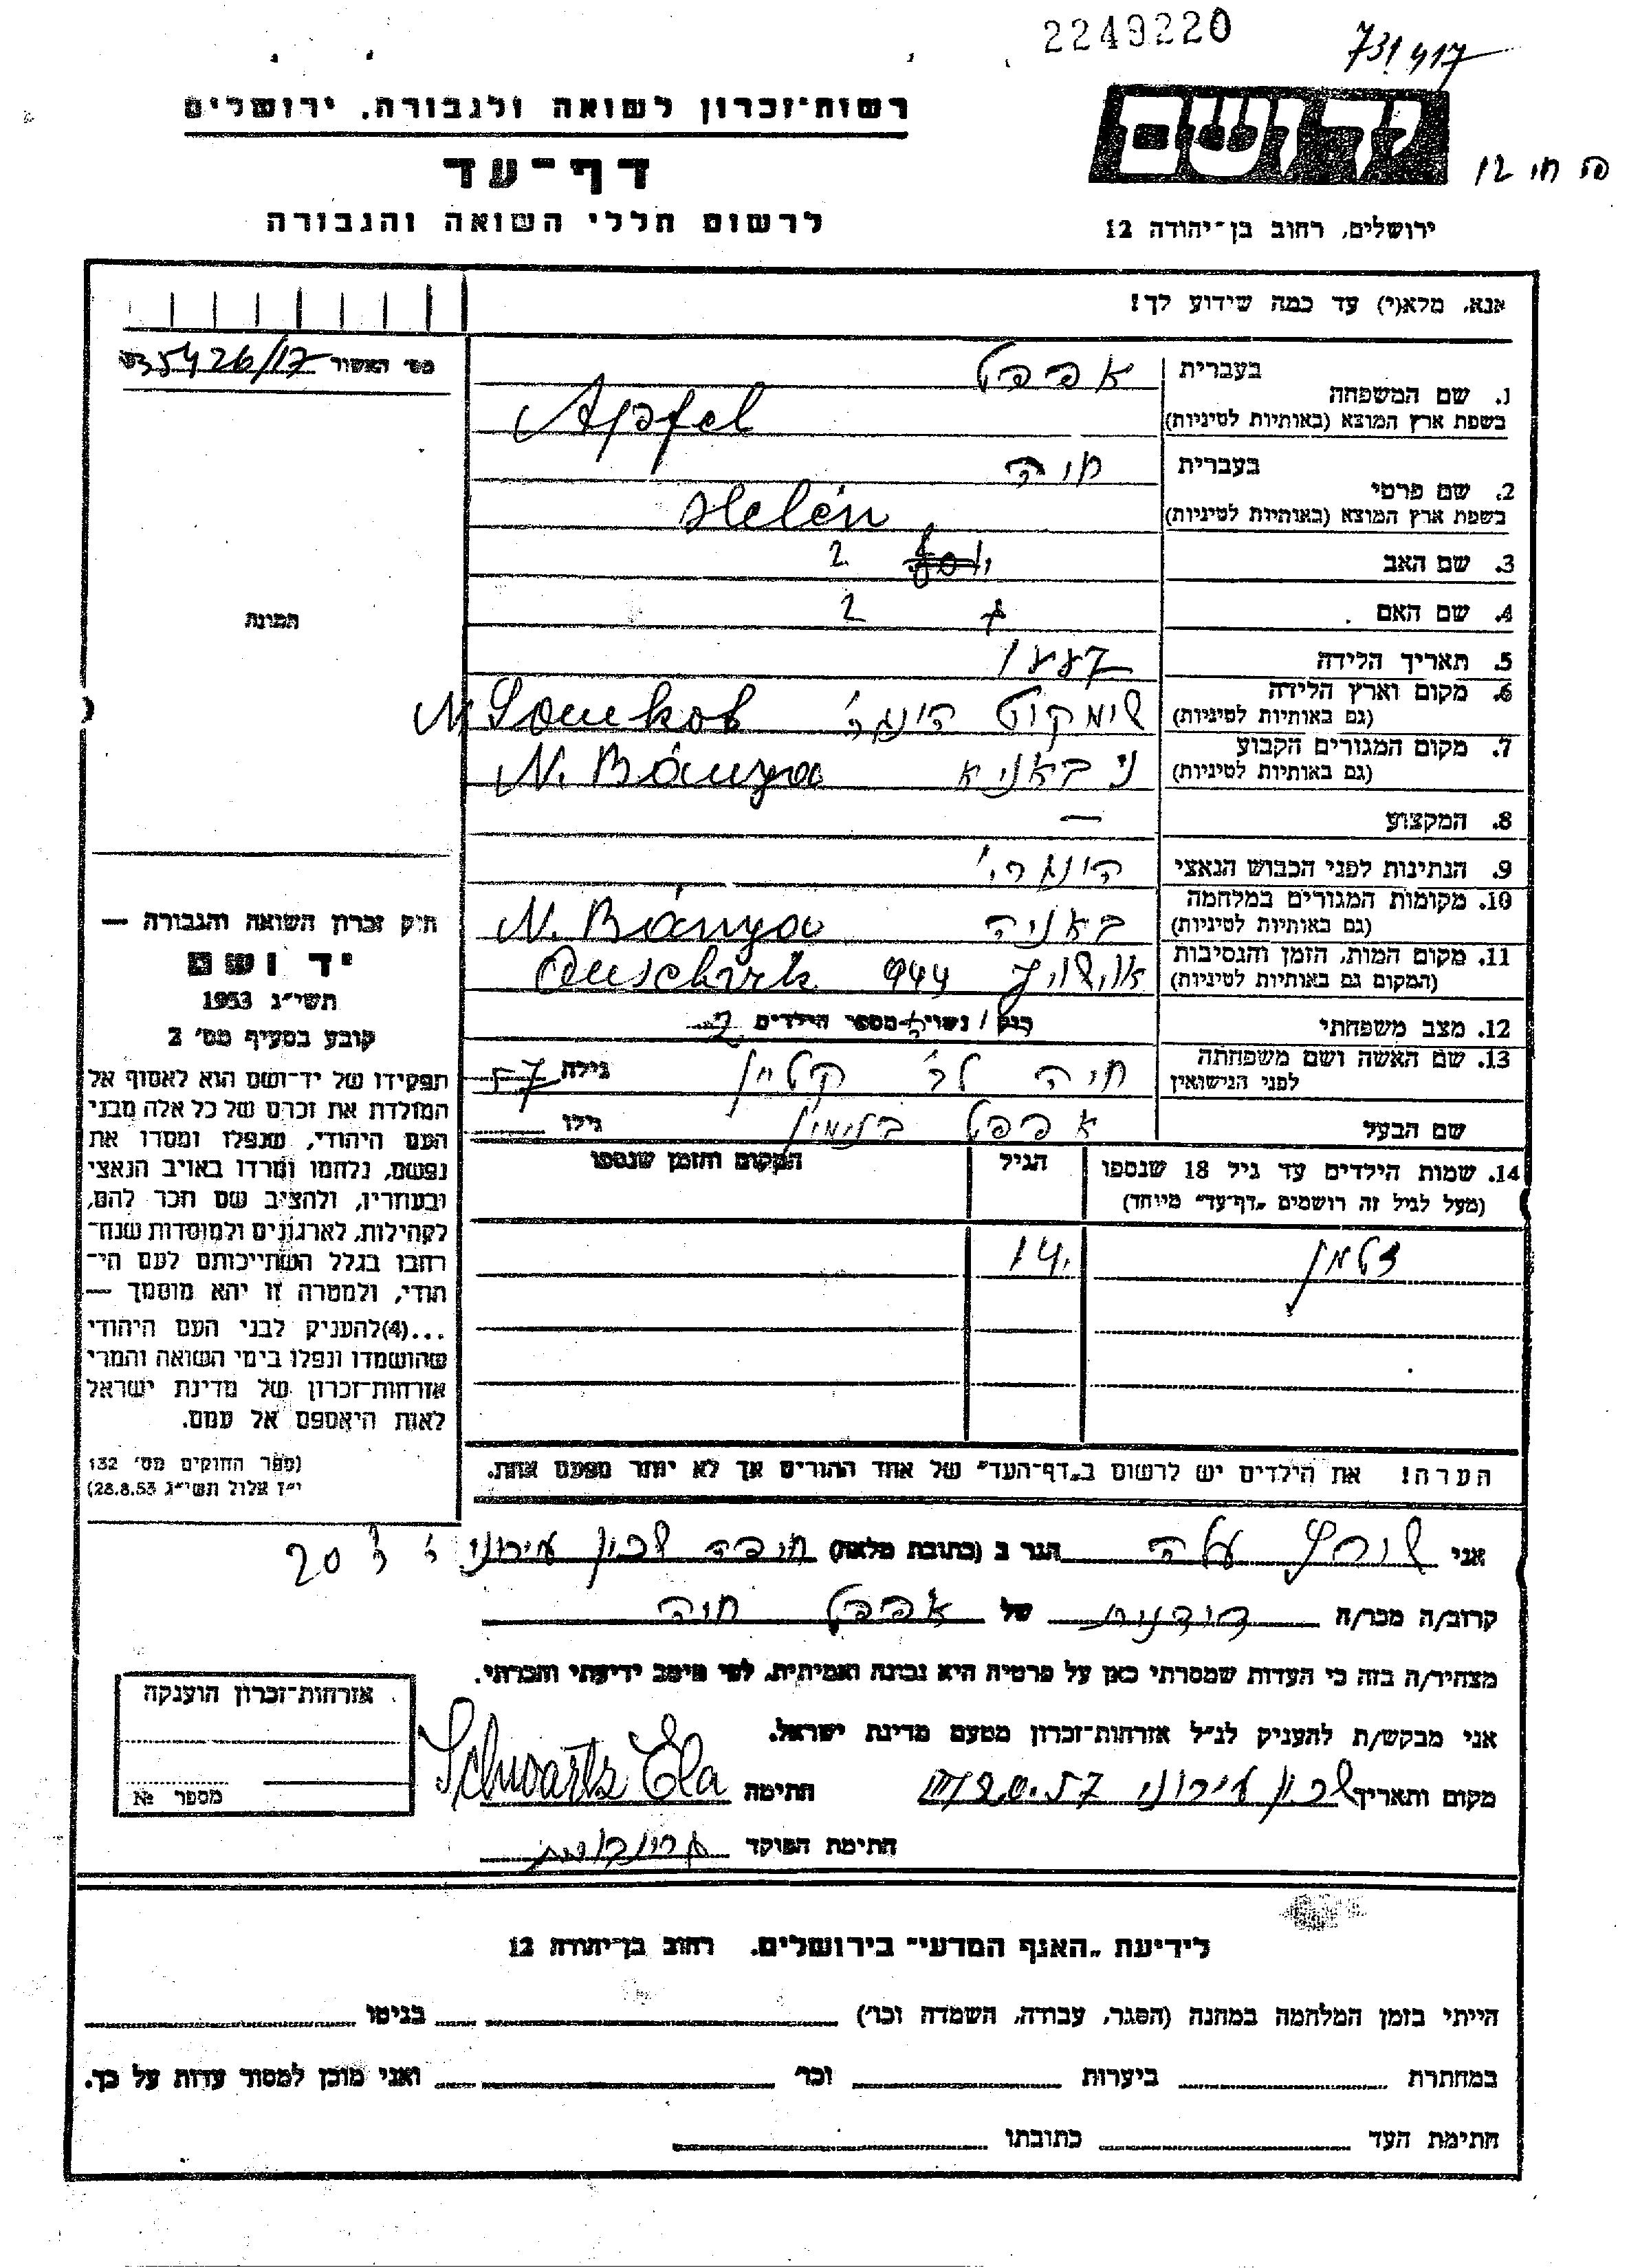 2249220
731417
רשות־זכרון לשואה ולגבורה, ירושלים
יד ושם
דף־עד
לרשום חללי השואה והגבורה
ירושלים, רחוב בן־יהודה 12
אנא, מלא(י) עד כמה שידוע לך!
מס׳ האשור 35426/17
1. שם המשפחה
בעברית אפפל
בשפת ארץ המוצא (באותיות לטיניות) Apfel
2. שם פרטי
בעברית חיה
בשפת ארץ המוצא (באותיות לטיניות) Helén
3. שם האב
4. שם האם
תמונה
5. תאריך הלידה 1887
6. מקום וארץ הלידה
(גם באותיות לטיניות)
7. מקום המגורים הקבוע ני באניא N. Bánya
(גם באותיות לטיניות)
8. המקצוע —
9. הנתינות לפני הכבוש הנאצי
10. מקומות המגורים במלחמה באניה N. Bánya
(גם באותיות לטיניות)
11. מקום המות, הזמן והנסיבות 944
(המקום גם באותיות לטיניות)
12. מצב משפחתי רווק / נשוי מספר הילדים
13. שם האשה ושם משפחתה חיה לב׳ קליין גילה 57
לפני הנישואין
שם הבעל אפפל בנימין גילו
14. שמות הילדים עד גיל 18 שנספו הגיל המקום והזמן שנספו
(מעל לגיל זה רושמים „דף־עד״ מיוחד)
זלמן 14
הערה! את הילדים יש לרשום ב„דף־העד״ של אחד ההורים אך לא יותר מפעם אחת.
חוק זכרון השואה והגבורה —
יד ושם
תשי״ג 1953
קובע בסעיף מס׳ 2
תפקידו של יד־ושם הוא לאסוף אל
המולדת את זכרם של כל אלה מבני
העם היהודי, שנפלו ומסרו את
נפשם, נלחמו ומרדו באויב הנאצי
ובעוזריו, ולהציב שם וזכר להם,
לקהילות, לארגונים ולמוסדות שנח־
רבו בגלל השתייכותם לעם הי־
הודי, ולמטרה זו יהא מוסמך —
...(4)להעניק לבני העם היהודי
שהושמדו ונפלו בימי השואה והמרי
אזרחות־זכרון של מדינת ישראל
לאות היאספם אל עמם.
(ספר החוקים מס׳ 132
י״ז אלול תשי״ג 28.8.53)
אני שורץ עלה הגר ב (כתובת מלאה) חיפה שכון עירוני 20
קרוב/ה מכר/ה דודנית של אפפל חיה
מצהיר/ה בזה כי העדות שמסרתי כאן על פרטיה היא נכונה ואמיתית, לפי מיטב ידיעתי והכרתי.
אני מבקש/ת להעניק לנ״ל אזרחות־זכרון מטעם מדינת ישראל.
מקום ותאריך שכון עירוני 20.57 חתימה Schwartz Ela
חתימת הפוקד
אזרחות־זכרון הוענקה
מספר №
לידיעת „האגף המדעי״ בירושלים, רחוב בן־יהודה 12
הייתי בזמן המלחמה במחנה (הסגר, עבודה, השמדה וכו׳) בגיטו
במחתרת ביערות וכו׳ ואני מוכן למסור עדות על כך.
חתימת העד כתובתו